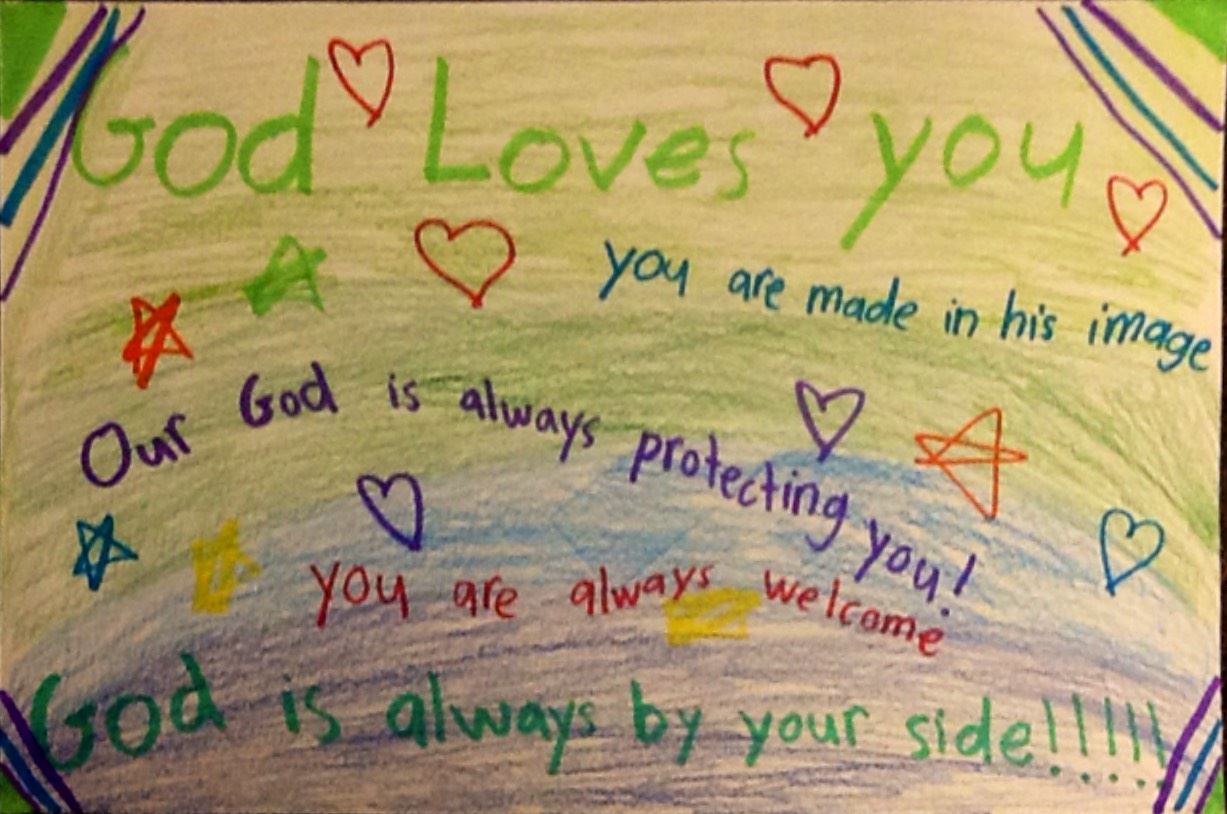 God Loves you
you are made in his image
Our God is always protecting you!
you are always welcome
God is always by your side!!!!!